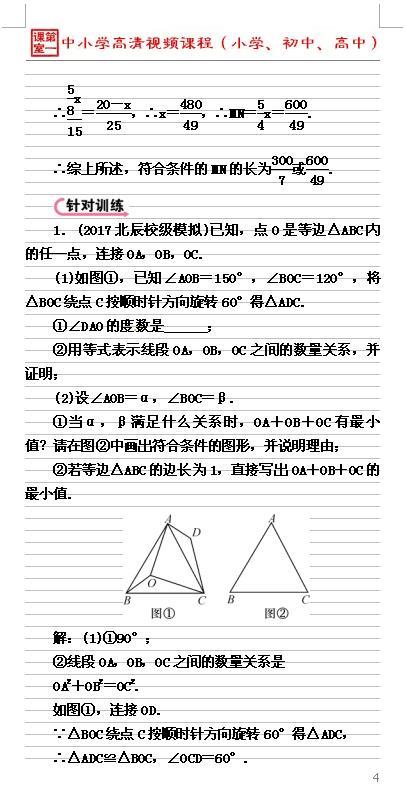 课第
室一 中小学高清视频课程（小学、初中、高中）
∴5/8x/15=20－x/25，∴x=480/49，∴MN=5/4x=600/49.
∴综上所述，符合条件的MN的长为300/7或600/49.
针对训练
1.（2017北辰校级模拟)已知，点O是等边△ABC内
的任一点，连接OA，OB，OC.
(1)如图①，已知∠AOB=150°，∠BOC=120°，将
△BOC绕点C按顺时针方向旋转60°得△ADC.
①∠DAO的度数是______；
②用等式表示线段OA，OB，OC之间的数量关系，并
证明；
(2)设∠AOB=α，∠BOC=β.
①当α，β满足什么关系时，OA+OB+OC有最小
值？请在图②中画出符合条件的图形，并说明理由；
②若等边△ABC的边长为1，直接写出OA+OB+OC的
最小值.
A D O B C A B C
图① 图②
解：(1)①90°；
②线段OA，OB，OC之间的数量关系是
OA²+OB²=OC².
如图①，连接OD.
∵△BOC绕点C按顺时针方向旋转60°得△ADC，
∴△ADC≌△BOC，∠OCD=60°.
4